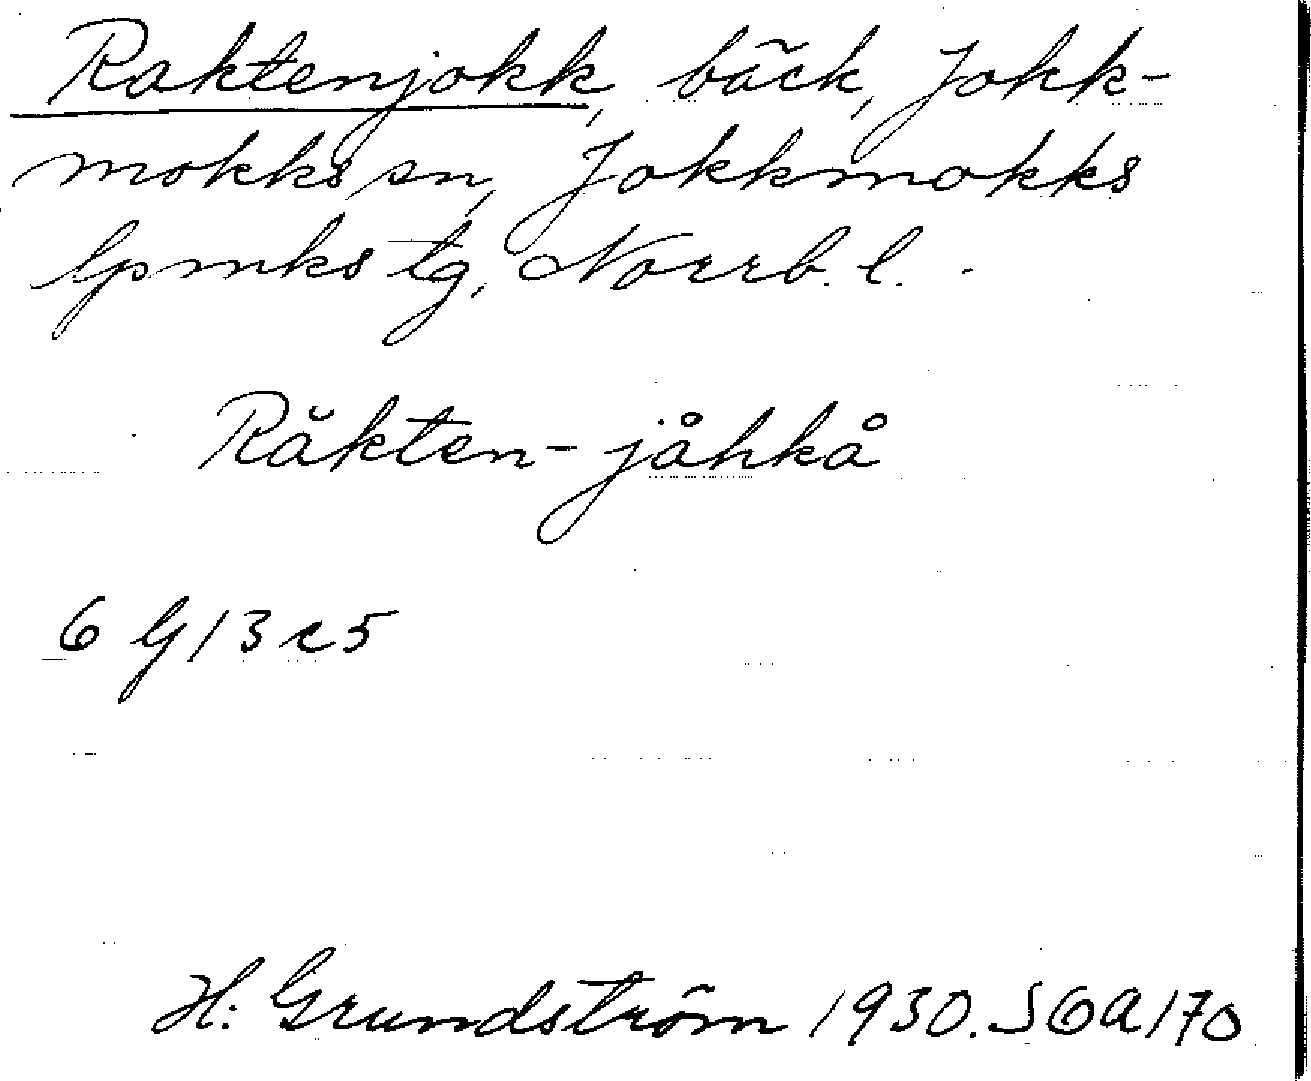 Raktenjokk, bäck, Jokk-
mokks sn, Jokkmokks
lpmks tg, Norrb. l.
Răkten-jåhkå
6 G 13 c 5
H. Grundström 1930. S 6 a 170